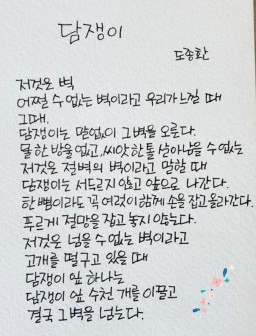 담쟁이
도종환
저것은 벽
어쩔 수 없는 벽이라고 우리가 느낄 때
그때,
담쟁이는 말없이 그 벽을 오른다.
물 한 방울 없고, 씨앗 한 톨 살아남을 수 없는
저것은 절벽의 벽이라고 말할 때
담쟁이는 서두르지 않고 앞으로 나간다.
한 뼘이라도 꼭 여럿이 함께 손을 잡고 올라간다.
푸르게 절망을 잡고 놓지 않는다.
저것은 넘을 수 없는 벽이라고
고개를 떨구고 있을 때
담쟁이 잎 하나는
담쟁이 잎 수천 개를 이끌고
결국 그 벽을 넘는다.